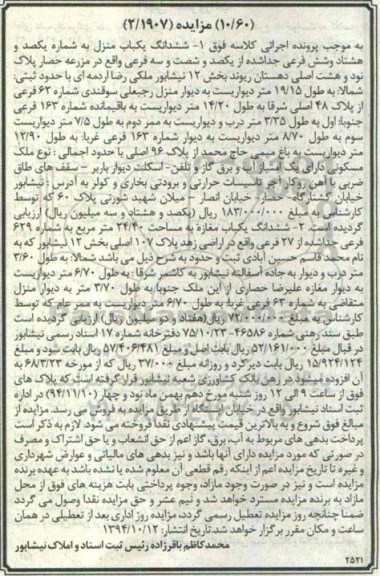 (۱۰/۶۰) مزایده (۲/۱۹۰۷)
به موجب پرونده اجرائی کلاسه فوق ۱- ششدانگ یکباب منزل به شماره یکصد و
هشتاد وشش فرعی جداشده از یکصد و شصت و سه فرعی واقع در مزرعه حصار پلاک
نود و هشت اصلی دهستان ریوند بخش ۱۲ نیشابور ملکی رضا اردمه ای با حدود ثبتی:
شمالا: به طول ۱۹/۱۵ متر دیواریست به دیوار منزل رجبعلی سوقندی شماره ۶۲ فرعی
از پلاک ۴۸ اصلی شرقا به طول ۱۴/۲۰ متر دیواریست به باقیمانده شماره ۱۶۳ فرعی
جنوبا: اول به طول ۳/۳۵ متر درب و دیواریست به ممر دوم به طول ۷/۵ متر دیواریست
سوم به طول ۸/۷۰ متر دیواریست به دیوار شماره ۱۶۳ فرعی غربا: به طول ۱۲/۹۰
متر دیواریست به باغ میمی حاج محمد از پلاک ۹۶ اصلی با حدود اجمالی: نوع ملک
مسکونی دارای یک امتیاز آب و برق گاز و تلفن- اسکلت دیوار باربر – سقف های طاق
ضربی با آهن روکار آجر تاسیسات حرارتی و برودتی بخاری و کولر به آدرس: نیشابور
خیابان کشتارگاه- حصار- خیابان انصار – میلان شهید شورنی پلاک ۶۰ که توسط
کارشناس به مبلغ ۱۸۳/۰۰۰/۰۰۰ ریال (یکصد و هشتاد و سه میلیون ریال) ارزیابی
گردیده است. ۲- ششدانگ یکباب مغازه به مساحت ۲۴/۴۰ متر مربع به شماره ۶۲۹
فرعی جداشده از ۲۷ فرعی واقع در اراضی زهد پلاک ۱۰۷ اصلی بخش ۱۲ نیشابور که به
نام محمد قاسم حسین آبادی ثبت و حدود به شرح ذیل می باشد شمالا: به طول ۳/۶۰
متر درب و دیوار به جاده آسفالته نیشابور به کاشمر شرقا: به طول ۶/۷۰ متر دیواریست
به دیوار مغازه علیرضا حصاری از این ملک جنوبا به طول ۳/۷۰ متر به دیوار منزل
متقاضی به شماره ۶۳ فرعی غربا: به طول ۶/۷۰ متر دیواریست به ممر عام که توسط
کارشناس به مبلغ ۷۲/۰۰۰/۰۰۰ ریال(هفتاد و دو میلیون ریال) ارزیابی گردیده است
طبق سند رهنی شماره ۴۶۵۸۶- ۷۵/۱۰/۲۳ دفترخانه شماره ۱۷ اسناد رسمی نیشابور
در قبال مبلغ ۵۲/۱۶۱/۰۰۰ ریال بابت اصل و مبلغ ۵۷/۴۰۶/۴۸۱ ریال بابت سود و مبلغ
۱۵/۹۲۴/۱۲۴ ریال بابت دیرکرد و روزانه مبلغ ۳۷/۰۰۰ ریال که از مورخه ۶۸/۳/۲۳ به
آن افزوده میشود در رهن بانک کشاورزی شعبه نیشابور قرار گرفته است که پلاک های
فوق از ساعت ۹ الی ۱۲ روز شنبه مورخ دهم بهمن ماه نود و چهار (۹۴/۱۱/۱۰) در اداره
ثبت اسناد نیشابور واقع در خیابان ایستگاه از طریق مزایده به فروش می رسد. مزایده از
مبالغ فوق شروع و به بالاترین قیمت پیشنهادی نقدا فروخته می شود. لازم به ذکر است
پرداخت بدهی های مربوط به آب، برق، گاز اعم از حق انشعاب و یا حق اشتراک و مصرف
در صورتی که مورد مزایده دارای آنها باشد و نیز بدهی های مالیاتی و عوارض شهرداری
و غیره تا تاریخ مزایده اعم از اینکه رقم قطعی آن معلوم شده یا نشده باشد به عهده برنده
مزایده است و نیز در صورت وجود مازاد، وجوه پرداختی بابت هزینه های فوق از محل
مازاد به برنده مزایده مسترد خواهد شد و نیم عشر و حق مزایده نقدا وصول می گردد
ضمنا چنانچه روز مزایده تعطیل رسمی گردد، مزایده روز اداری بعد از تعطیلی در همان
ساعت و مکان مقرر برگزار خواهد شد تاریخ انتشار: ۱۳۹۴/۱۰/۱۲
محمدکاظم باقرزاده رئیس ثبت اسناد و املاک نیشابور
۲۵۲۱